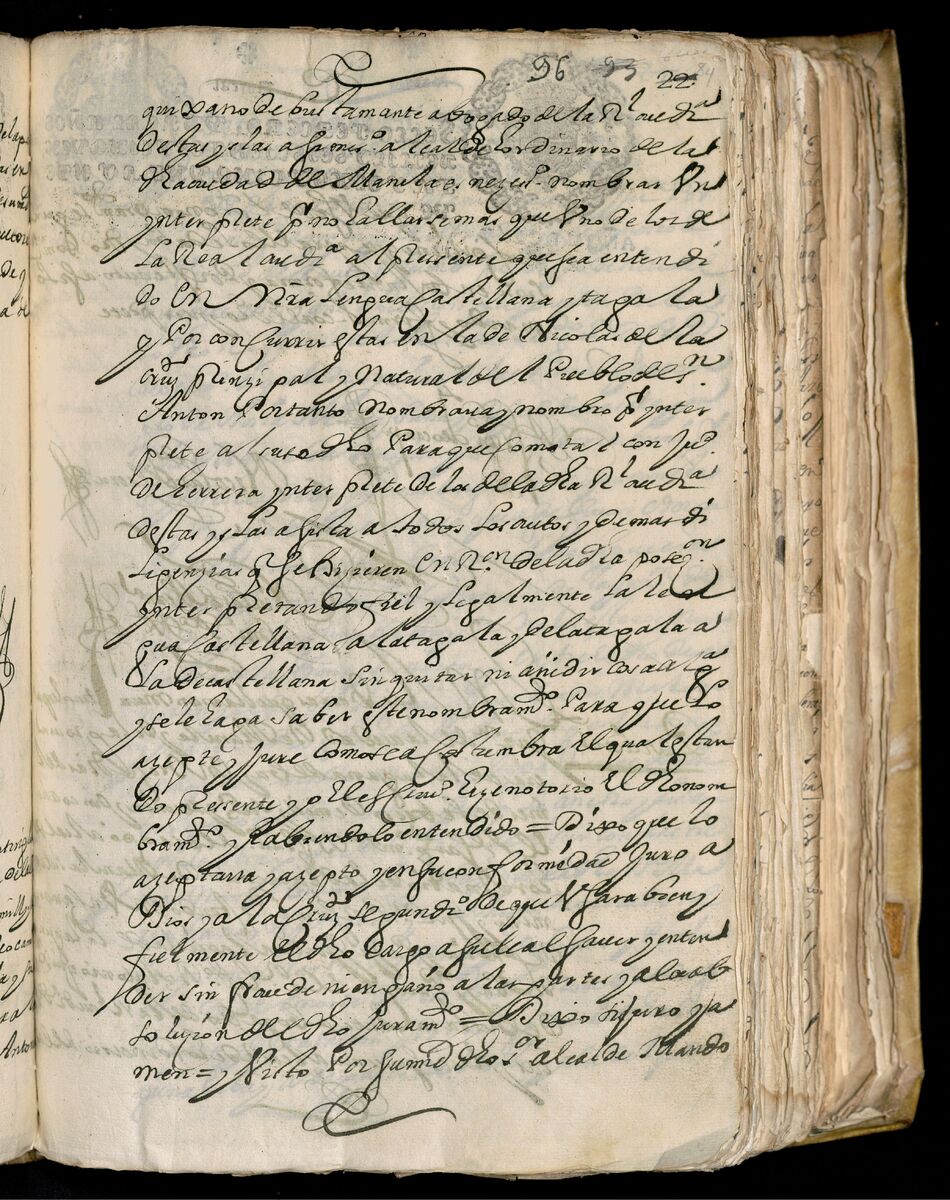 96 95 22
quixano de bustamante abogado de la Rl audia
destas yslas asimismo alcalde hordinario de la
dha ciudad de Manila es nezeso nombrar Vn
ynterprete pr no hallarse mas que Vno de los de
La Real audia al pressente que sea entendi
do en Nra Lengua Castellana y tagala
y Por concurrir estas en la de Nicolas de la
cruz prinzipal y Natural del Pueblo de Sn
Anton Por tanto Nombraua y nombro pr ynter
prete al suso dho Para que Como tal con Juo
de herrera ynterprete de los de la dha Rl audia
destas yslas asista a todos Los autos y demas di
ligenzias q se hizieren en Ron de la dha poson
ynterpretando fiel y legalmente La len
gua Castellana a la tagala y de la tagala a
La de castellana sin quitar ni añidir cosa alga
y se le haga saber este nombramto Para que lo
azepte y Jure Como se acostumbra El qual estan
do pressente yo el escriuo hize notorio El dho nom
bramto y habiendolo entendido = Dixo que lo
azeptaua y azepto y en su conformidad Juro a
Dios y a la Cruz segun dro de que Vsara bien y
fielmente El dho Cargo a su leal sauer y enten
der sin fraude ni engaño a las partes y a la ab
soluzion del dho Juramto = Dixo si juro y a
men = y Visto Por su md dho sor alcalde Mando